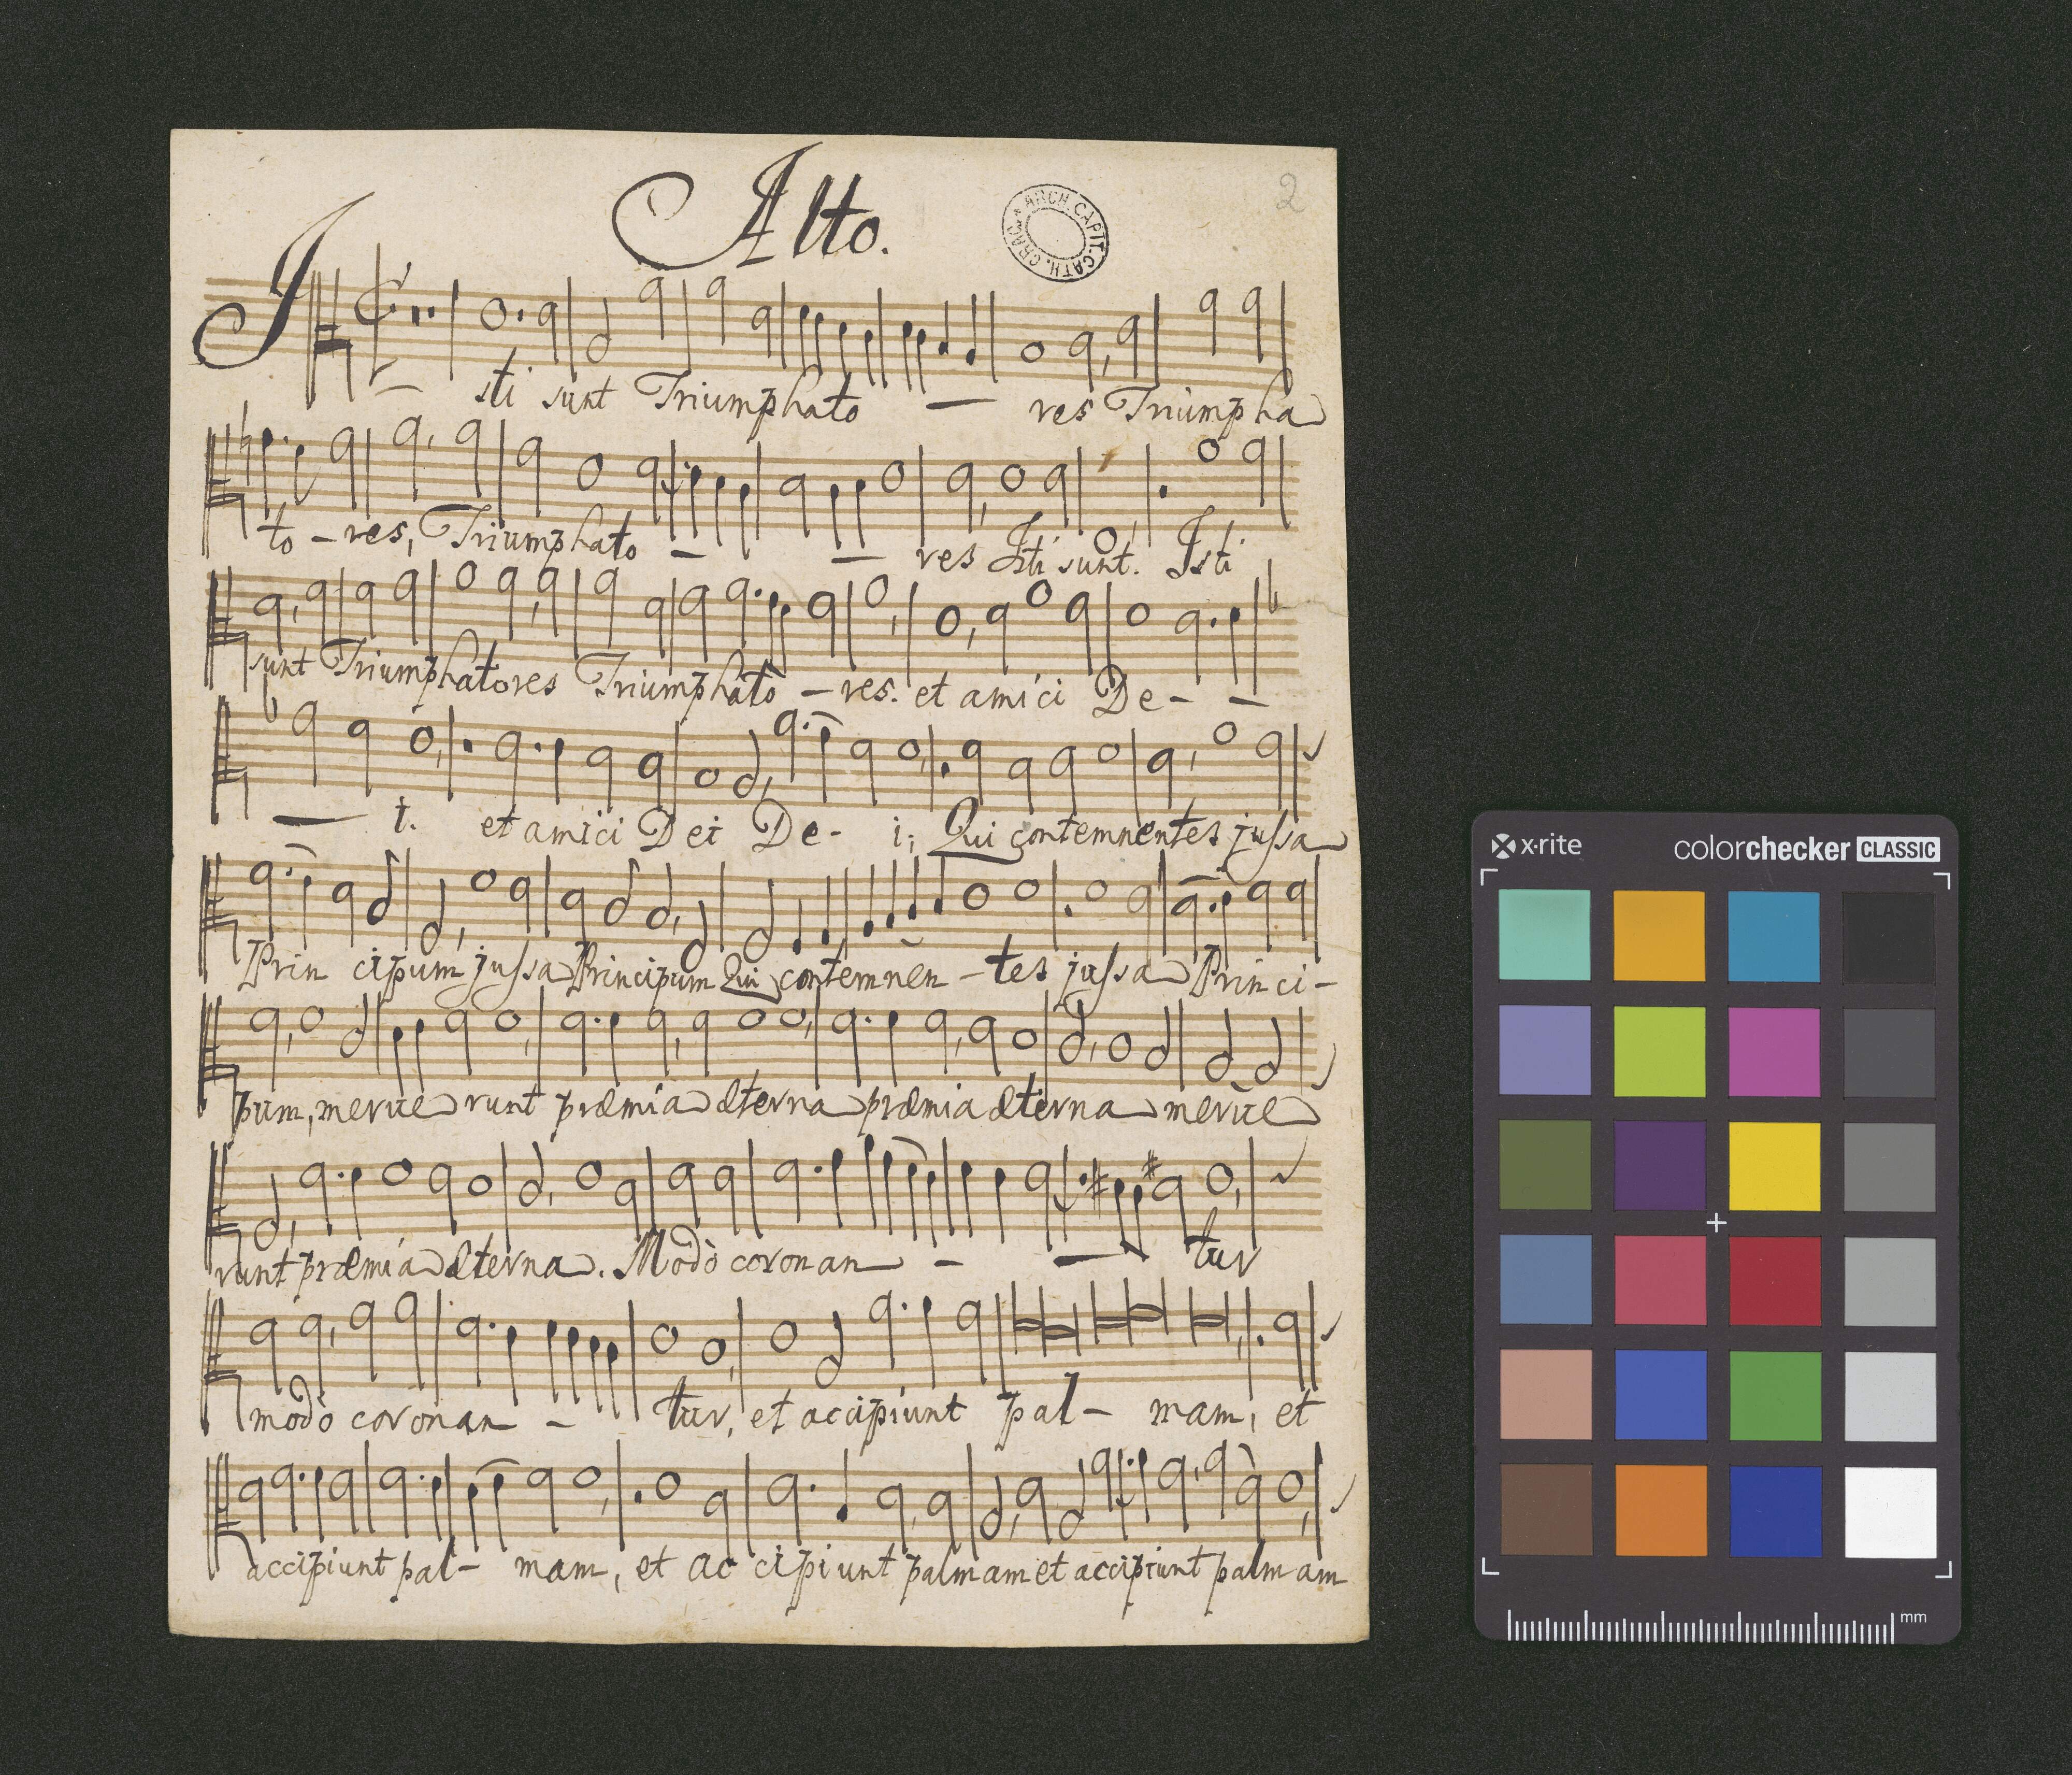 Alto.
2
ARCH. CAPIT. CATH. CRAC.
Isti sunt Triumphato — res Triumpha
to – res, Triumphato – — res Isti sunt. Isti
sunt Triumphatores Triumphato – res. et amici De - –
— i. et amici Dei De - i; Qui contemnentes jussa
Prin cipum jussa Principum Qui contemnen – tes jussa Princi –
pum, merue runt præmia æterna præmia æterna merue
runt præmia æterna. Modò coronan – — tur
modò coronan – tur, et accipiunt pal – mam, et
accipiunt pal – mam, et ac cipiunt palmam et accipiunt palmam
x·rite colorchecker CLASSIC
mm